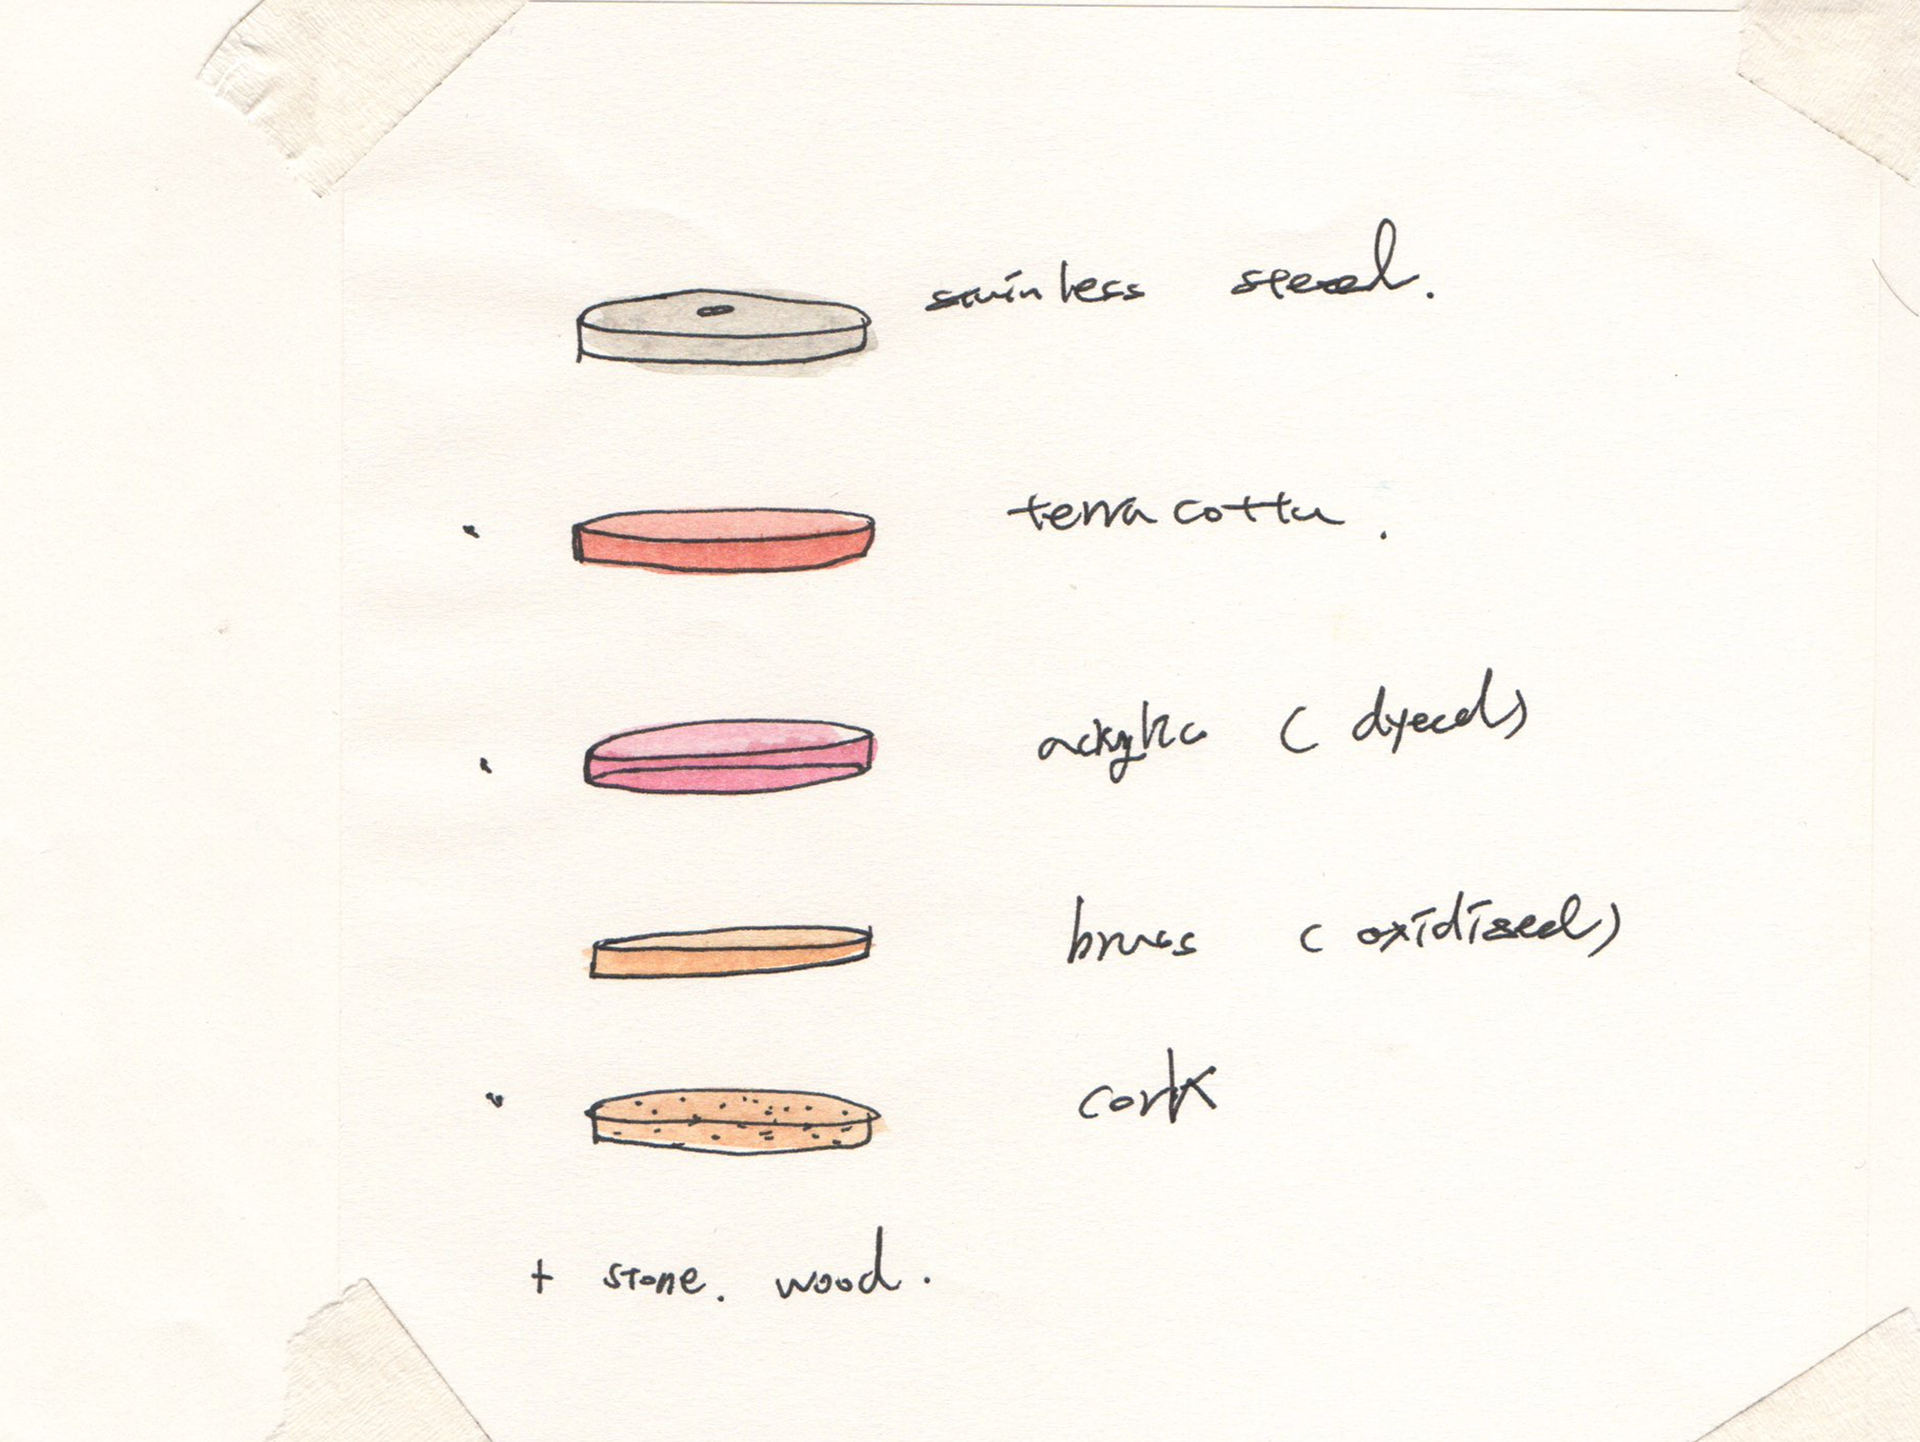 stainless steel.
terracotta.
ackylic (dyed)
brass (oxidised)
cork
+ stone. wood.